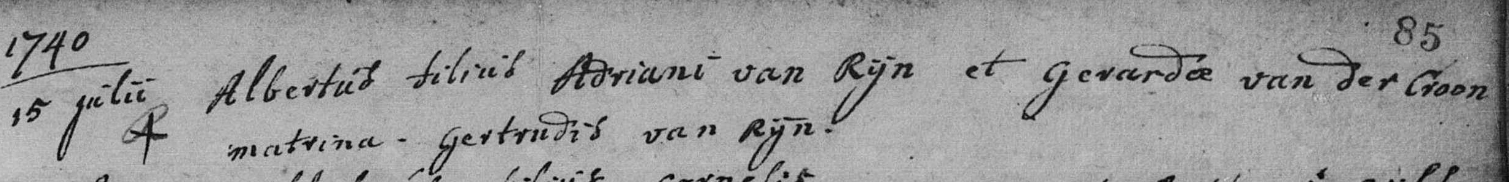 85
1740
15 julii Albertus filius Adriani van Rijn et Gerardæ van der Croon
matrina - Gertrudis van Rijn.
filius Cornelis